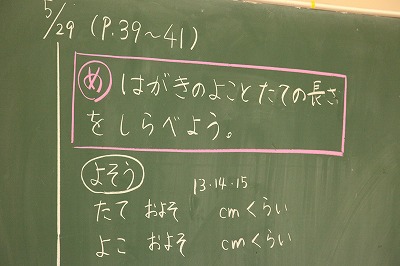 5/29 (P.39~41)
め はがきのよことたての長さ
をしらべよう。
よそう
13・14・15
たて およそ cmくらい
よこ およそ cmくらい